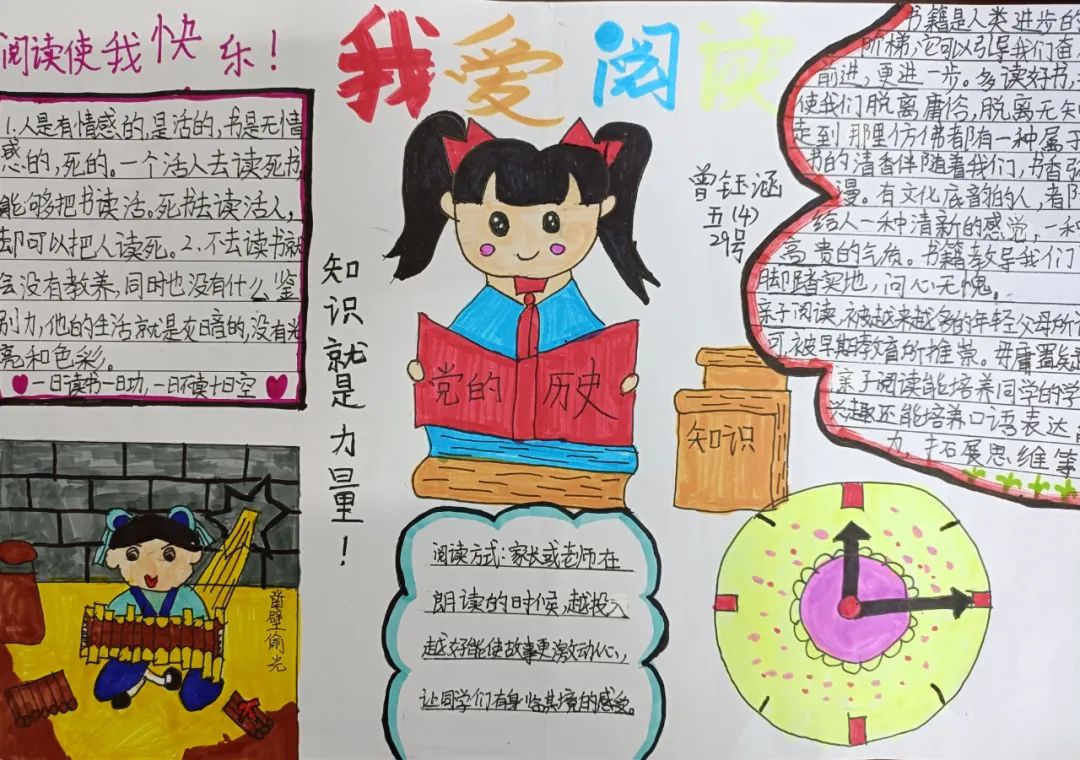 阅读使我快乐！
我爱阅读
1.人是有情感的，是活的，书是无情
感的，死的。一个活人去读死书，
能够把书读活。死书去读活人，
却可以把人读死。2.不去读书就
会没有教养，同时也没有什么鉴
别力，他的生活就是灰暗的，没有光
亮和色彩。
一日读书一日功，一日不读十日空
知识就是力量！
曾钰涵
五(4)
29号
党的历史
知识
书籍是人类进步的
阶梯，它可以引导我们直
前进，更进一步。多读好书，
使我们脱离庸俗，脱离无知
走到那里仿佛都有一种属于
书的清香伴随着我们，书香弥
漫。有文化底蕴的人，都
给人一种清新的感觉，一种
高贵的气质。书籍教导我们
脚踏实地，问心无愧。
亲子阅读，被越来越多的年轻父母所
可，被早期教育所推崇。毋庸置疑
亲子阅读能培养同学的学
兴趣还能培养口语表达
力，拓展思维等
凿壁偷光
阅读方式：家长或老师在
朗读的时候，越投入
越好能使故事更激动人心，
让同学们有身临其境的感受。